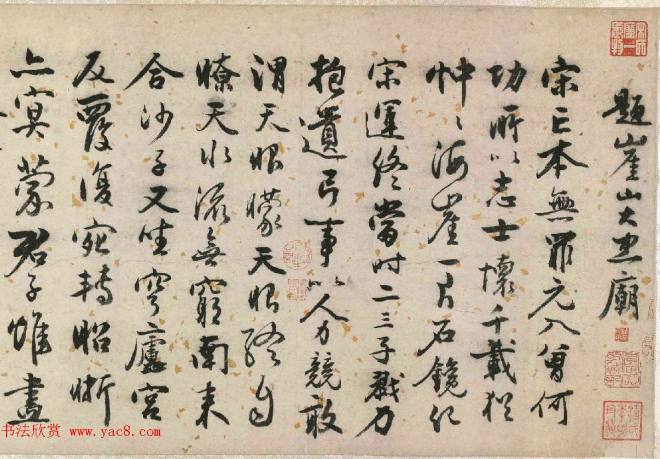 題崖山大忠廟
宋亡本無罪元入曾何
功所以志士懷千載猶
忡〻海崖一片石鐫紀
宋運終當時二三子戮力
抱遺弓事以人力競敢
謂天眼矇天眼終自
瞭天水流無窮南来
合沙子又坐穹廬宮
反覆復宛轉昭晰
亦冥蒙君子惟盡
书法欣赏 www.yac8.com